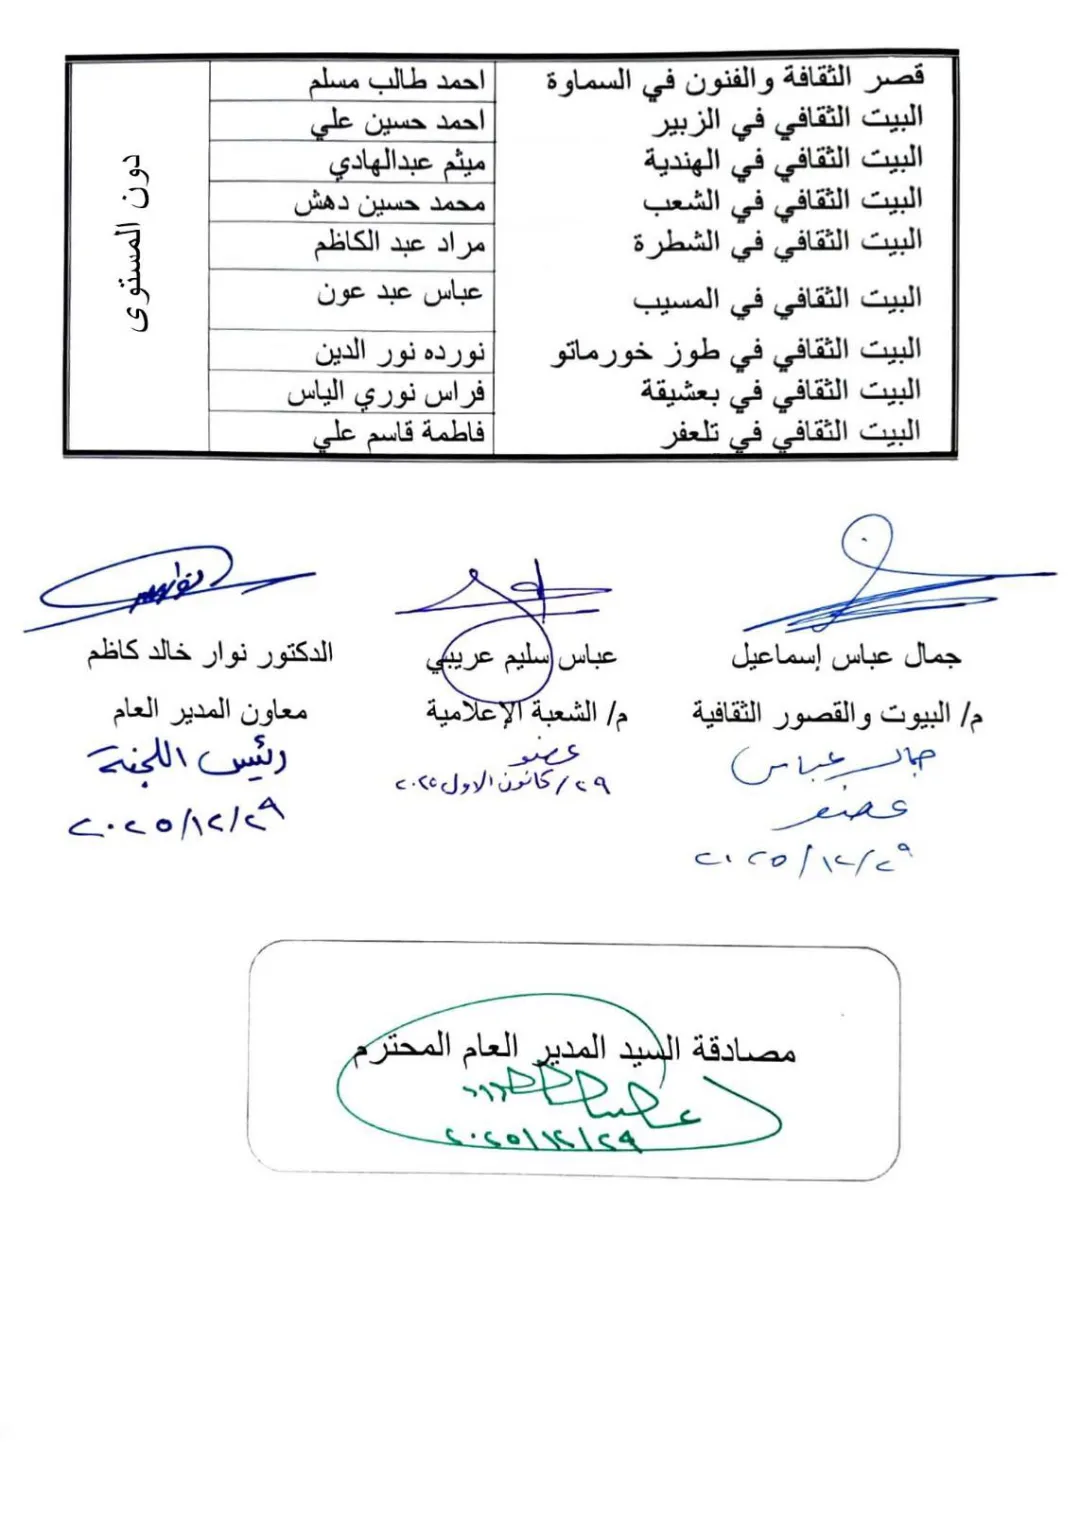 قصر الثقافة والفنون في السماوة احمد طالب مسلم
البيت الثقافي في الزبير احمد حسين علي
البيت الثقافي في الهندية ميثم عبدالهادي
البيت الثقافي في الشعب محمد حسين دهش
البيت الثقافي في الشطرة مراد عبد الكاظم
البيت الثقافي في المسيب عباس عبد عون
البيت الثقافي في طوز خورماتو نورده نور الدين
البيت الثقافي في بعشيقة فراس نوري الياس
البيت الثقافي في تلعفر فاطمة قاسم علي
دون المستوى
جمال عباس إسماعيل
م/ البيوت والقصور الثقافية
جمال عباس
عضو
٢٠٢٥/١٢/٢٩
عباس سليم عريبي
م/ الشعبة الإعلامية
عضو
٢٩/كانون الاول ٢٠٢٥
الدكتور نوار خالد كاظم
معاون المدير العام
رئيس اللجنة
٢٠٢٥/١٢/٢٩
مصادقة السيد المدير العام المحترم
٢٠٢٥/١٢/٢٩